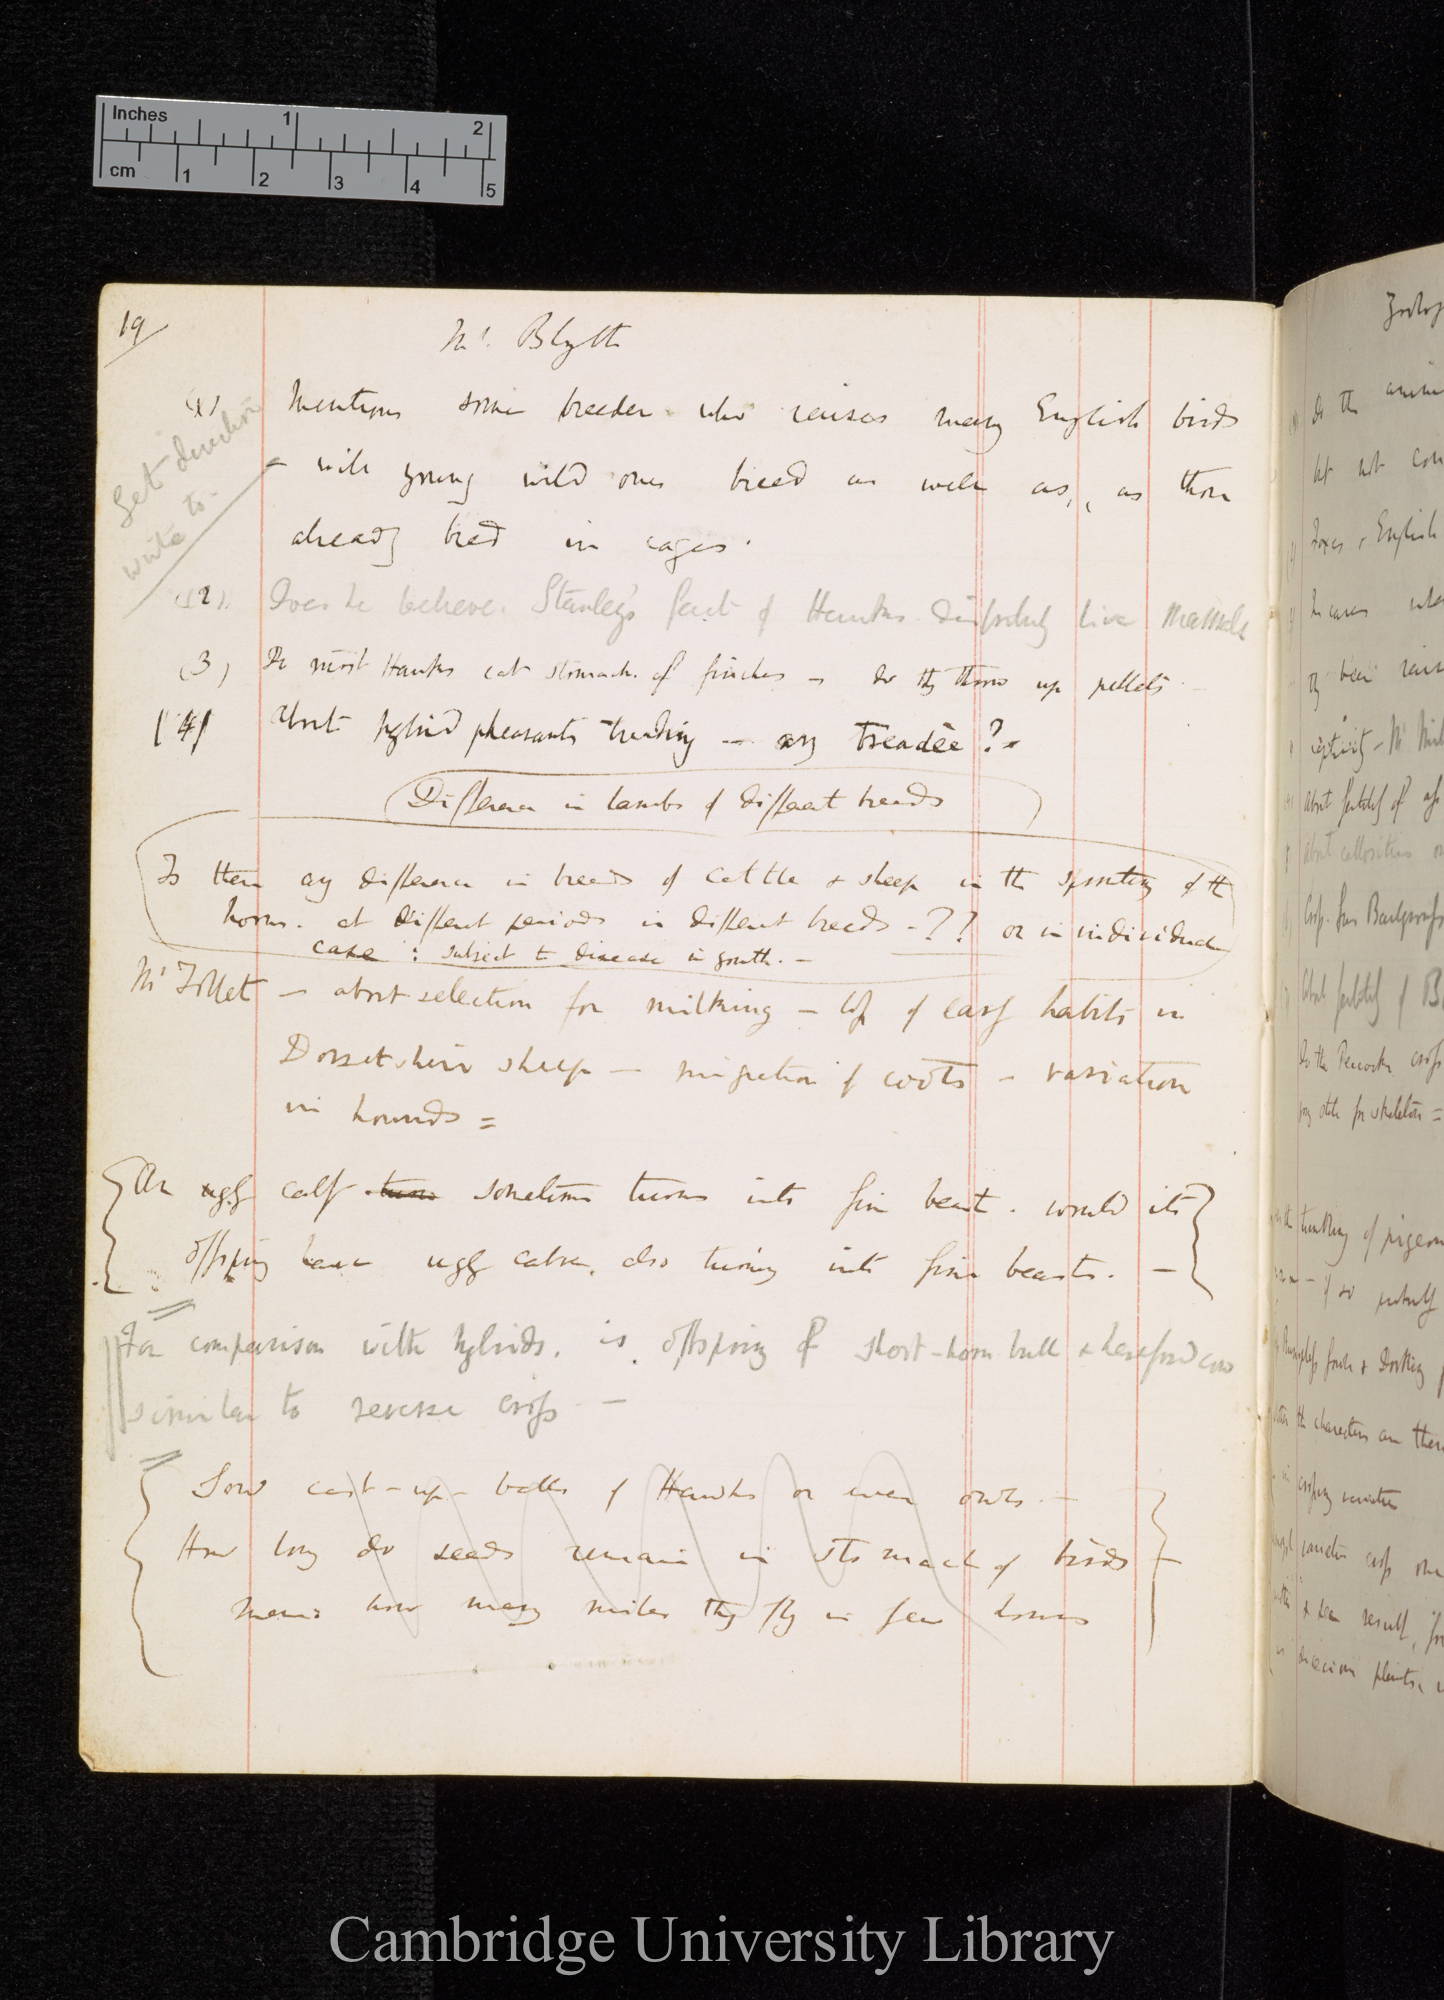 Inches 1 2
cm 1 2 3 4 5
19
Mr. Blyth
(1) Mentions some breeder who raises many English birds
- will young wild ones breed as well as, as those
already bred in cages.
Get direction
write to.
(2). Does he believe. Stanley's fact of Hawks live
(3) Do most Hawks eat stomach. of finches — do they throw up pellets —
(4) About hybrid pheasants treading — any treadee? -
Difference in lambs of different breeds
Is there any difference in breeds of cattle & sheep in the sprouting of the
horns. at different periods in different breeds -?? or in individual
case : subject to disease in youth. —
Mr Tollet — about selection for milking — loss of early habits in
Dorsetshire sheep — migration of coots — variation
in hounds =
An ugly calf turns sometimes turns into fine beast. would its
offspring have ugly calves, also turning into fine beasts. —
For comparison with hybrids. is offspring of short-horn bull & hereford cow
similar to reverse cross —
Sow cast-up- balls of Hawks or even owls. —
How long do seeds remain in stomach of birds —
means how many miles they fly in few hours
Do the
but not
Foxes & English
In cases
been
captivity — Mr
About fertility of
About callosities
About fertility of B
Do the Peacocks cross
for skeleton =
trembling of pigeon
— if so
fowls & Dorking
the characters are there
in crossing varieties
cross one
& see result,
dioecious plants,
Cambridge University Library